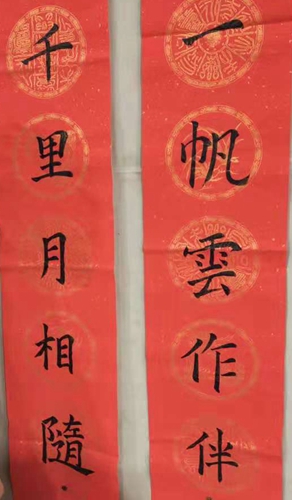 一帆雲作伴
千里月相隨